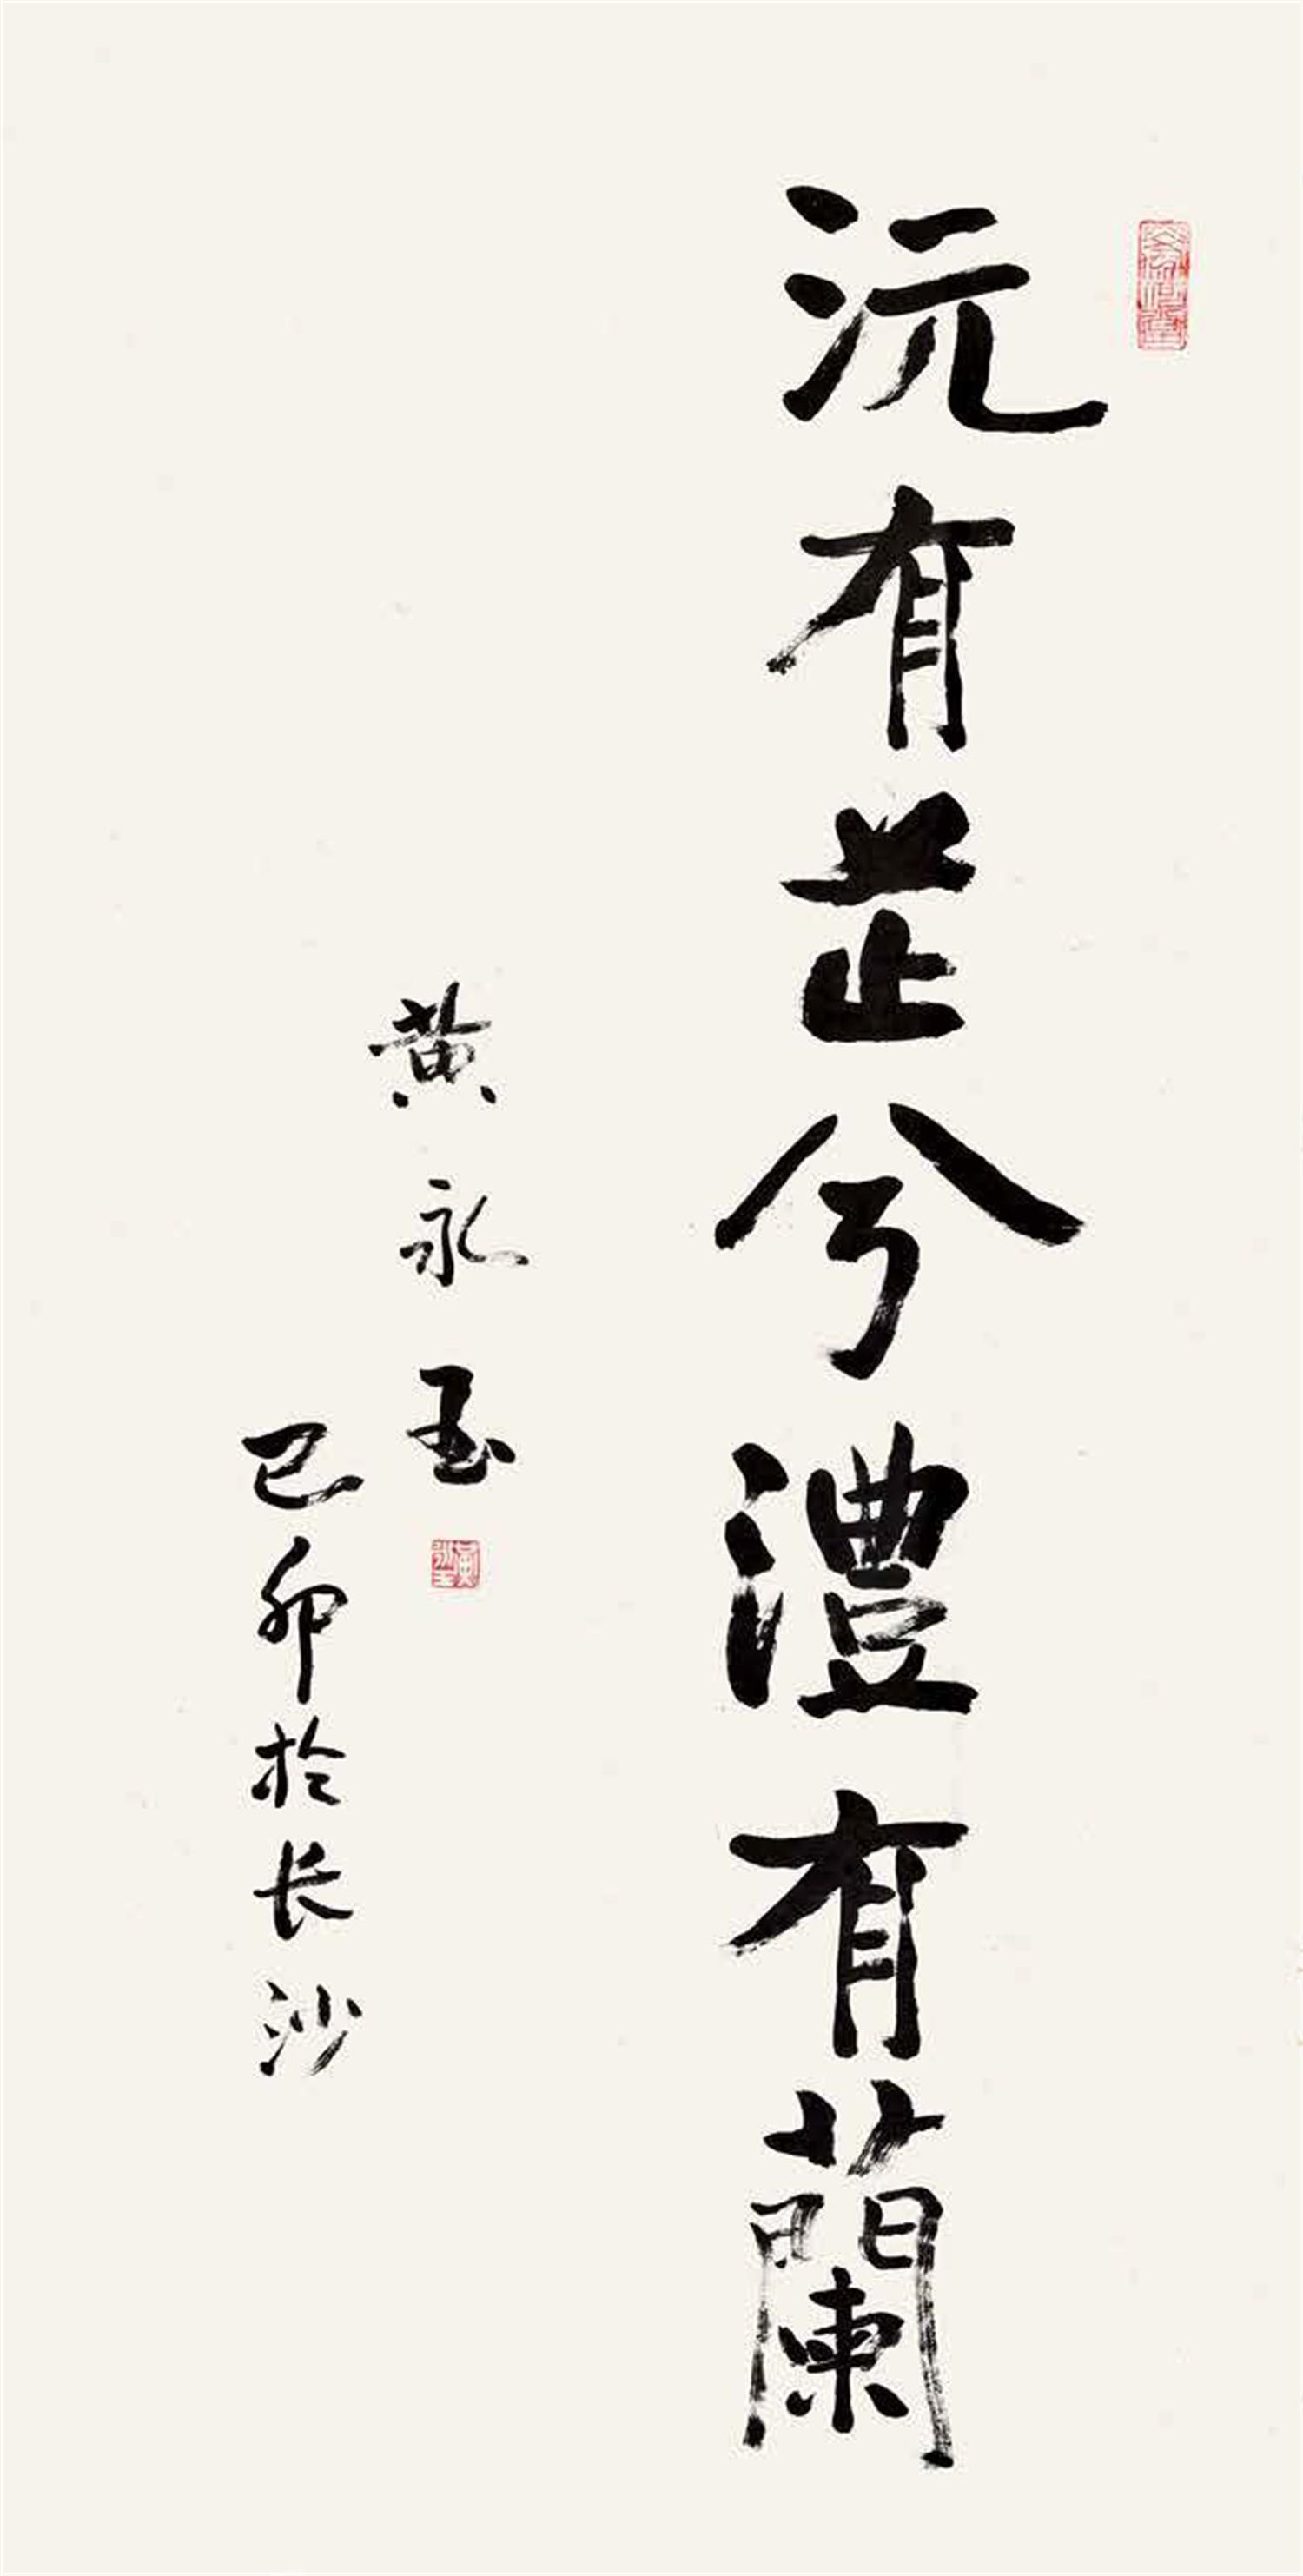 沅有芷兮澧有蘭
黄永玉
己卯於长沙
黃永玉